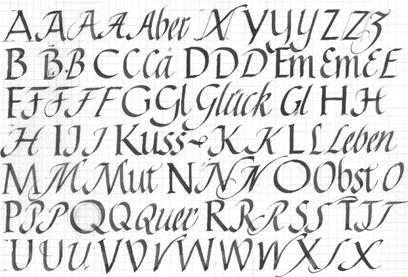 A A A A A Aber X X Y Y Y Z Z Z
B B B C C C a D D D Em Em E E
F F F F F G Gl Glück Gl H H
H I I J Kuss K K L L Leben
M M M Mut N N N O Obst O
P P P P Q Q Quer R R R S S T T T
U U U V V V W W W X X X